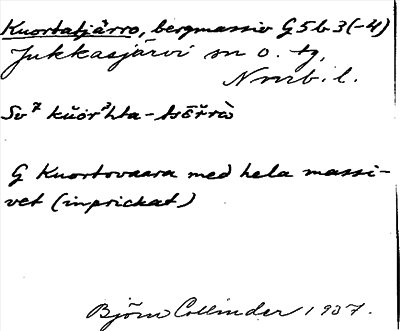 Kuortatjårro, bergmassiv G5b3(-4)
Jukkasjärvi sn o. tg,
Nmb. l.
Sv⁷ kŭor³hta-tsē̆řrȧ̀
G Kuortovaara med hela massi-
vet (inprickat)
Björn Collinder 1937.